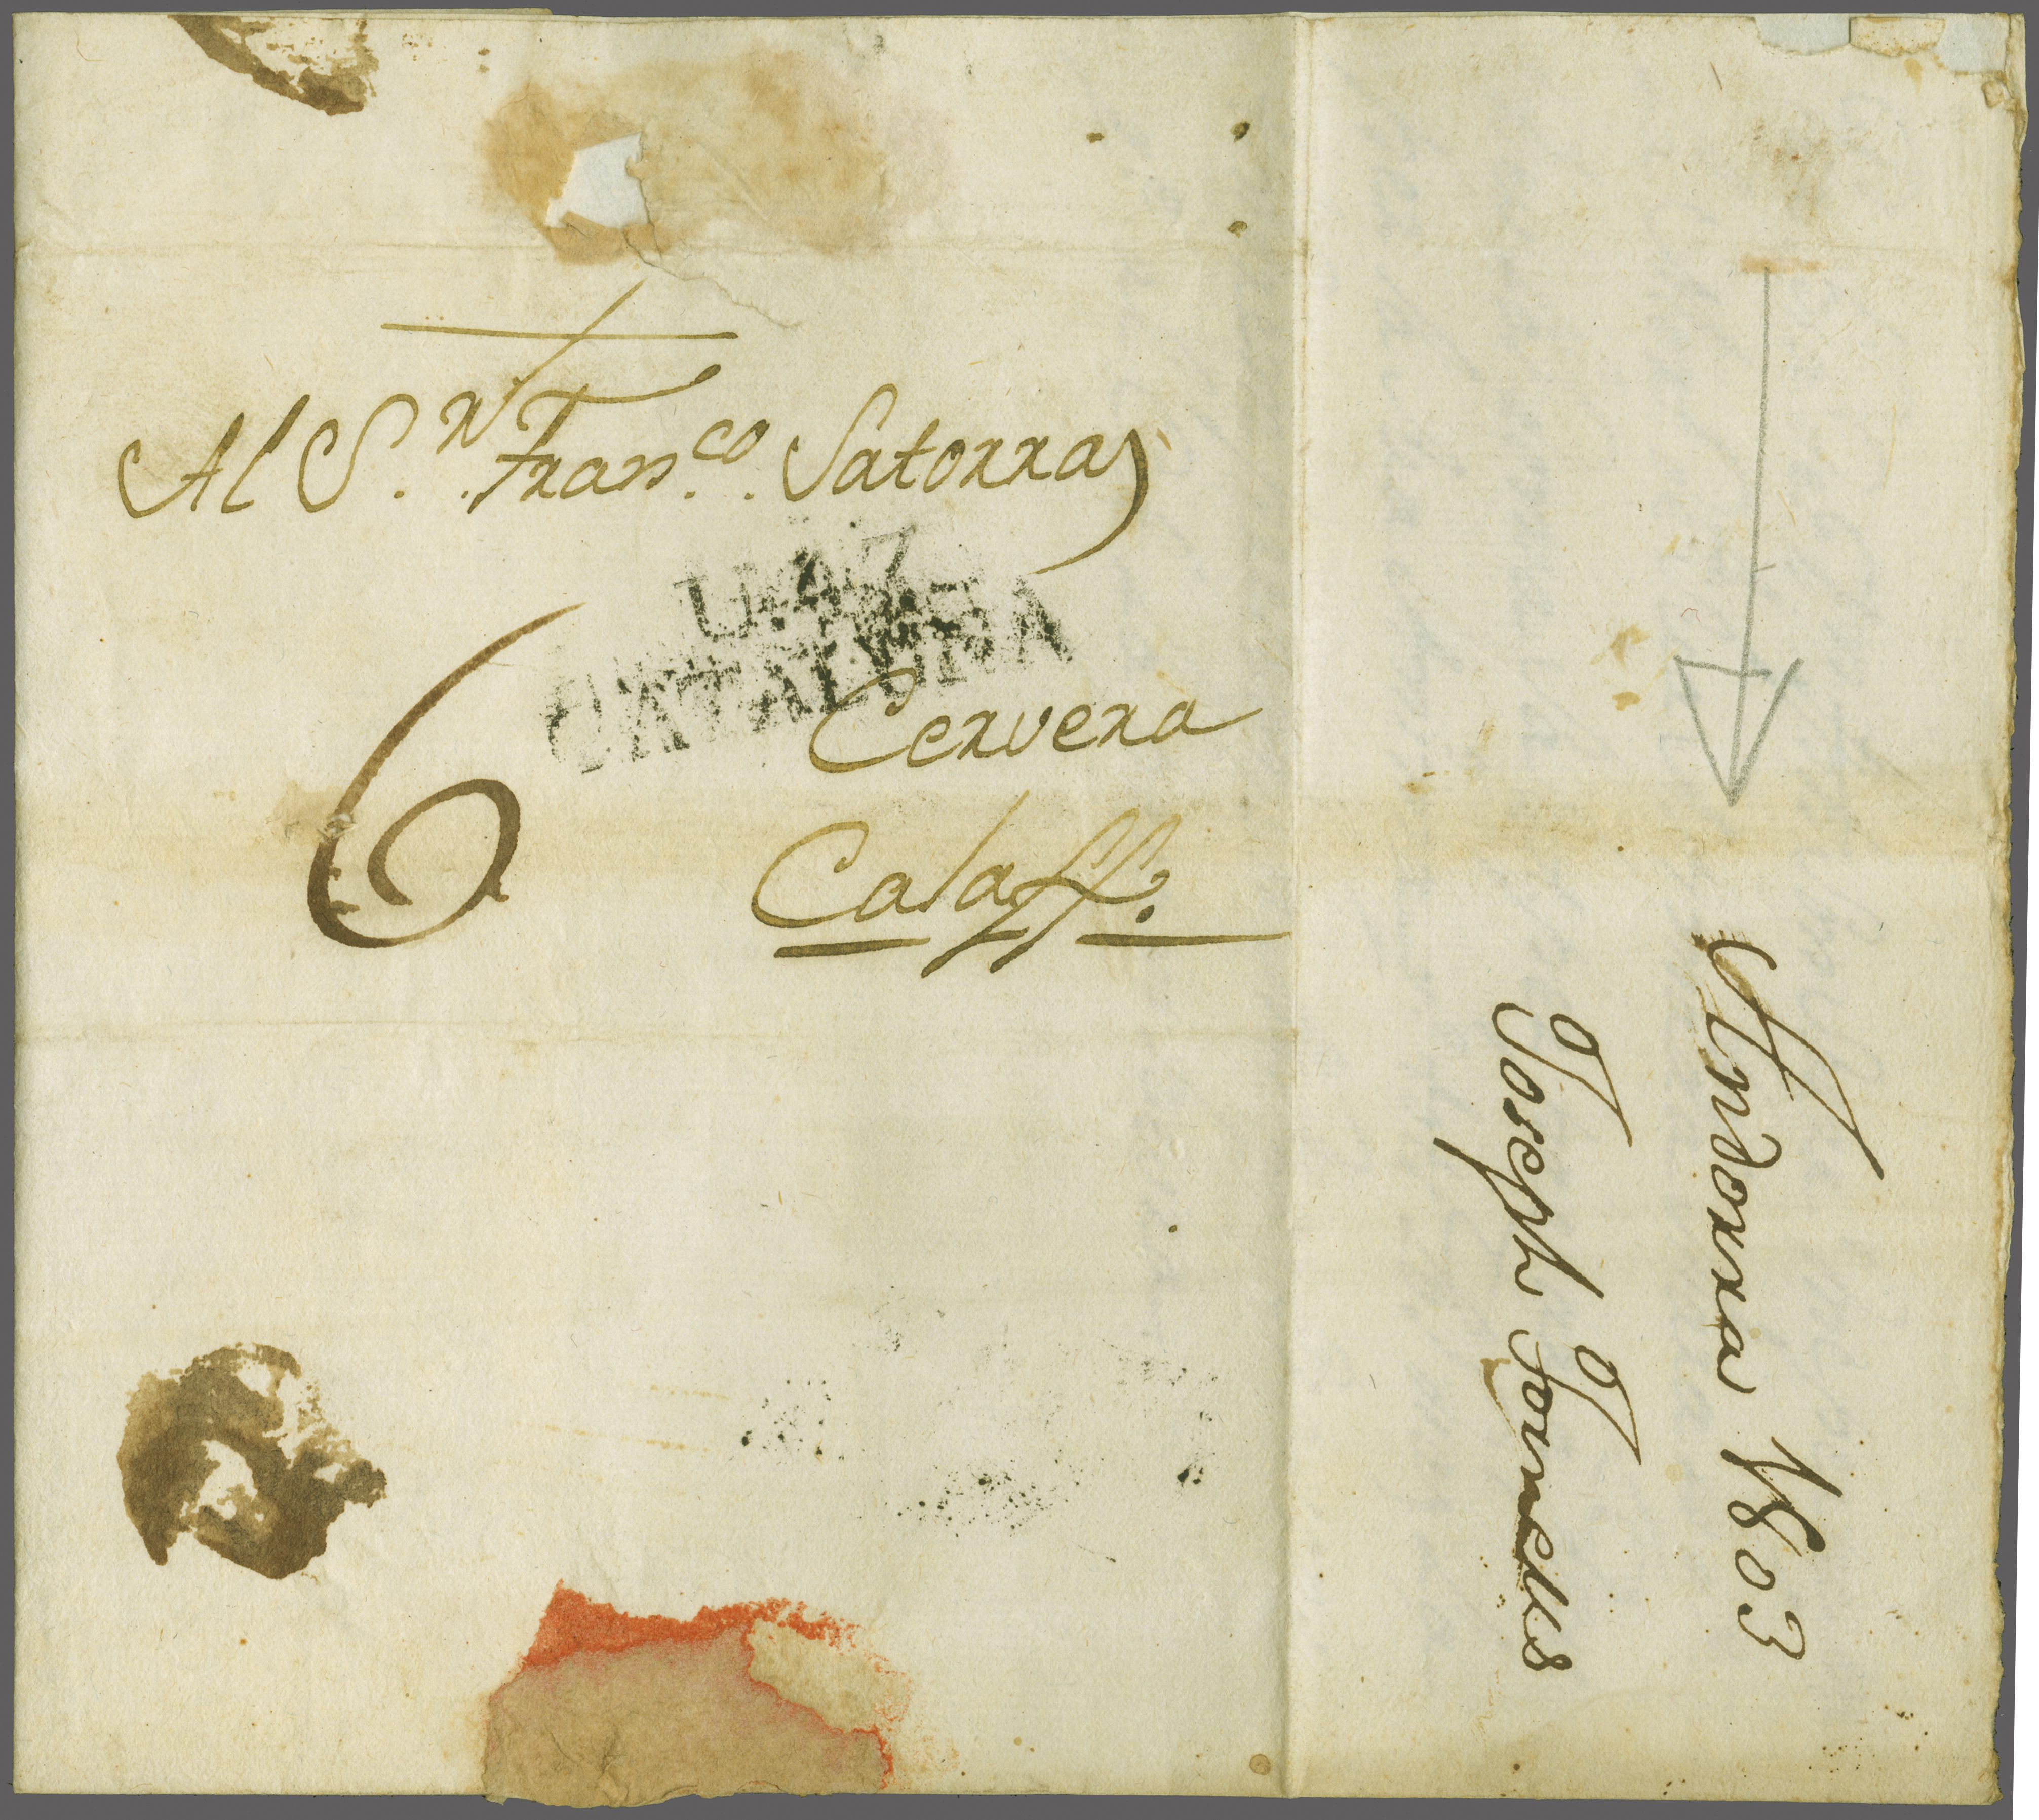 Al S.ⁿ Fran.ᶜᵒ Satorra
U.47.
CATALUÑA
6
Cervera
Calaff.
Andorra 1803
Joseph Tornells